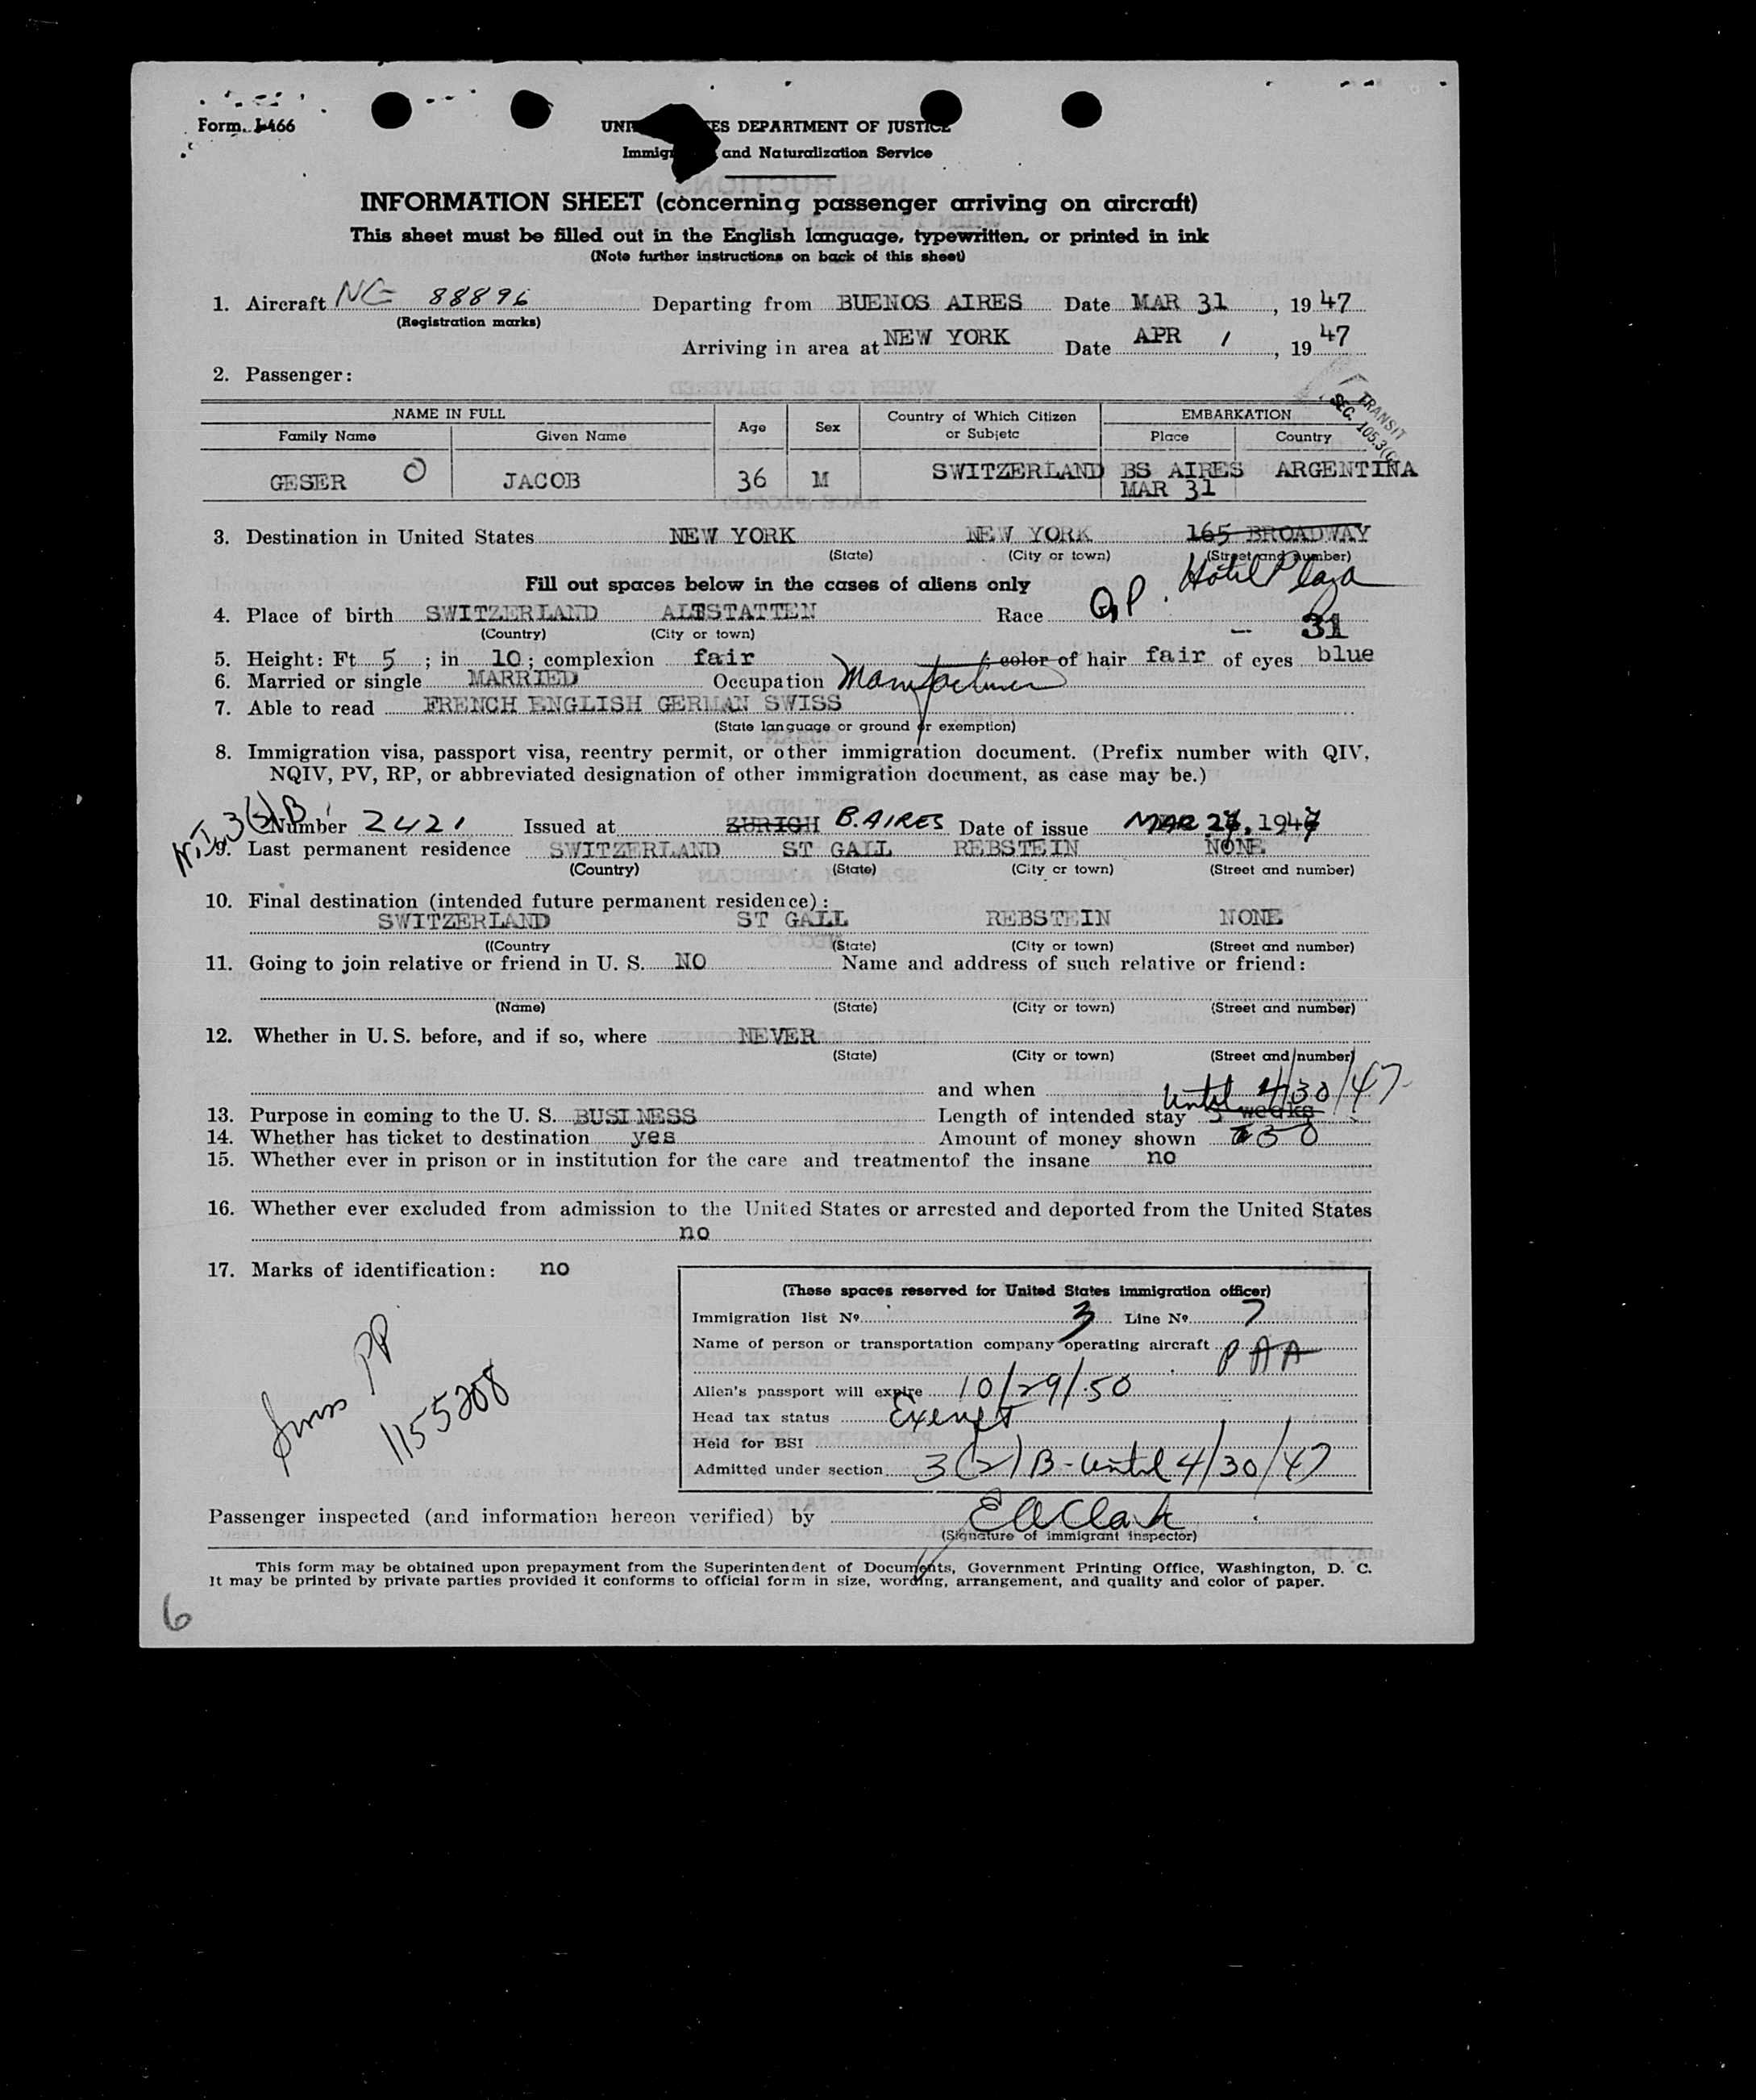 Form I-466
UNITED STATES DEPARTMENT OF JUSTICE
Immigration and Naturalization Service
INFORMATION SHEET (concerning passenger arriving on aircraft)
This sheet must be filled out in the English language, typewritten, or printed in ink
(Note further instructions on back of this sheet)
1. Aircraft NC 88896 Departing from BUENOS AIRES Date MAR 31, 1947
(Registration marks)
Arriving in area at NEW YORK Date APR 1, 1947
2. Passenger:
TRANSIT
SEC. 105.3(
NAME IN FULL Age Sex Country of Which Citizen or Subjetc EMBARKATION
Family Name Given Name Place Country
GESER O JACOB 36 M SWITZERLAND BS AIRES ARGENTINA
MAR 31
3. Destination in United States NEW YORK NEW YORK 165 BROADWAY
(State) (City or town) (Street and number)
Hotel Plaza
Fill out spaces below in the cases of aliens only
4. Place of birth SWITZERLAND ALTSTATTEN Race
(Country) (City or town) 31
5. Height: Ft 5; in 10; complexion fair; color of hair fair of eyes blue
6. Married or single MARRIED Occupation Manufacturer
7. Able to read FRENCH ENGLISH GERMAN SWISS
(State language or ground or exemption)
8. Immigration visa, passport visa, reentry permit, or other immigration document. (Prefix number with QIV,
NQIV, PV, RP, or abbreviated designation of other immigration document, as case may be.)
3(2)B
Number 2421 Issued at ZURICH B.AIRES Date of issue MAR 27, 1947
9. Last permanent residence SWITZERLAND ST GALL REBSTEIN NONE
(Country) (State) (City or town) (Street and number)
10. Final destination (intended future permanent residence):
SWITZERLAND ST GALL REBSTEIN NONE
((Country (State) (City or town) (Street and number)
11. Going to join relative or friend in U. S. NO Name and address of such relative or friend:
(Name) (State) (City or town) (Street and number)
12. Whether in U. S. before, and if so, where NEVER
(State) (City or town) (Street and number)
and when
until 4/30/47
13. Purpose in coming to the U. S. BUSINESS Length of intended stay 3 weeks
14. Whether has ticket to destination yes Amount of money shown
15. Whether ever in prison or in institution for the care and treatmentof the insane no
16. Whether ever excluded from admission to the United States or arrested and deported from the United States
no
17. Marks of identification: no
Swiss PP
1155208
(These spaces reserved for United States immigration officer)
Immigration list No 3 Line No 7
Name of person or transportation company operating aircraft PAA
Alien's passport will expire 10/29/50
Head tax status Exempt
Held for BSI
Admitted under section 3(2)B - until 4/30/47
Passenger inspected (and information hereon verified) by E A Clark
(Signature of immigrant inspector)
This form may be obtained upon prepayment from the Superintendent of Documents, Government Printing Office, Washington, D. C.
It may be printed by private parties provided it conforms to official form in size, wording, arrangement, and quality and color of paper.
6